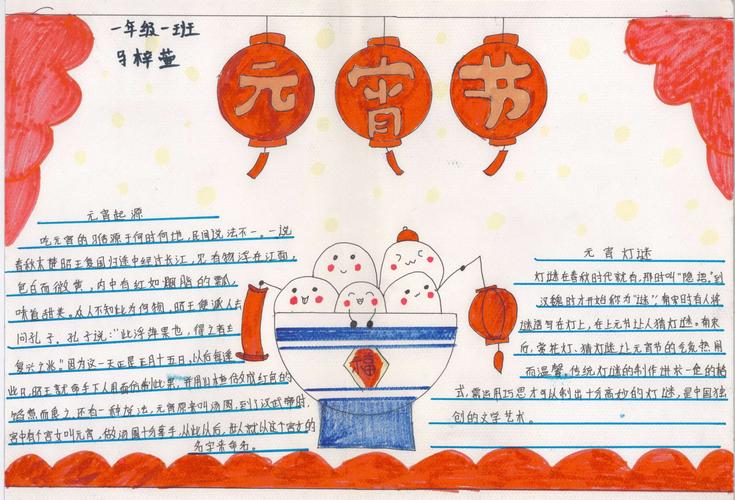 一年级一班
马梓萱
元宵节
元宵起源
吃元宵的习俗源于何时何地,民间说法不一。一说
春秋末楚昭王复国归途中经过长江,见有物浮在江面,
色白而微黄,内中有红如胭脂的瓤,
味道甜美。众人不知此为何物,昭王便派人去
问孔子。孔子说:“此浮萍果也,得之者主
复兴之兆。”因为这一天正是正月十五日,以后每逢
此日,昭王就命手下人用面仿制此果,并用山楂做成红色的
馅煮而食之。还有一种说法,元宵原来叫汤圆,到了汉武帝时,
宫中有个宫女叫元宵,做汤圆十分拿手,从此以后,世人就以这个宫女的
名字来命名。
福
元宵灯谜
灯谜在春秋时代就有,那时叫“隐语”。到
汉魏时才开始称为“谜”,南宋时有人将
谜语写在灯上,在上元节让人猜灯谜。
后,赏花灯、猜灯谜让元宵节的气氛热闹
而温馨。传统灯谜的制作讲求一定的格
式,需运用巧思才可以制出十分高妙的灯谜,是中国独
创的文学艺术。